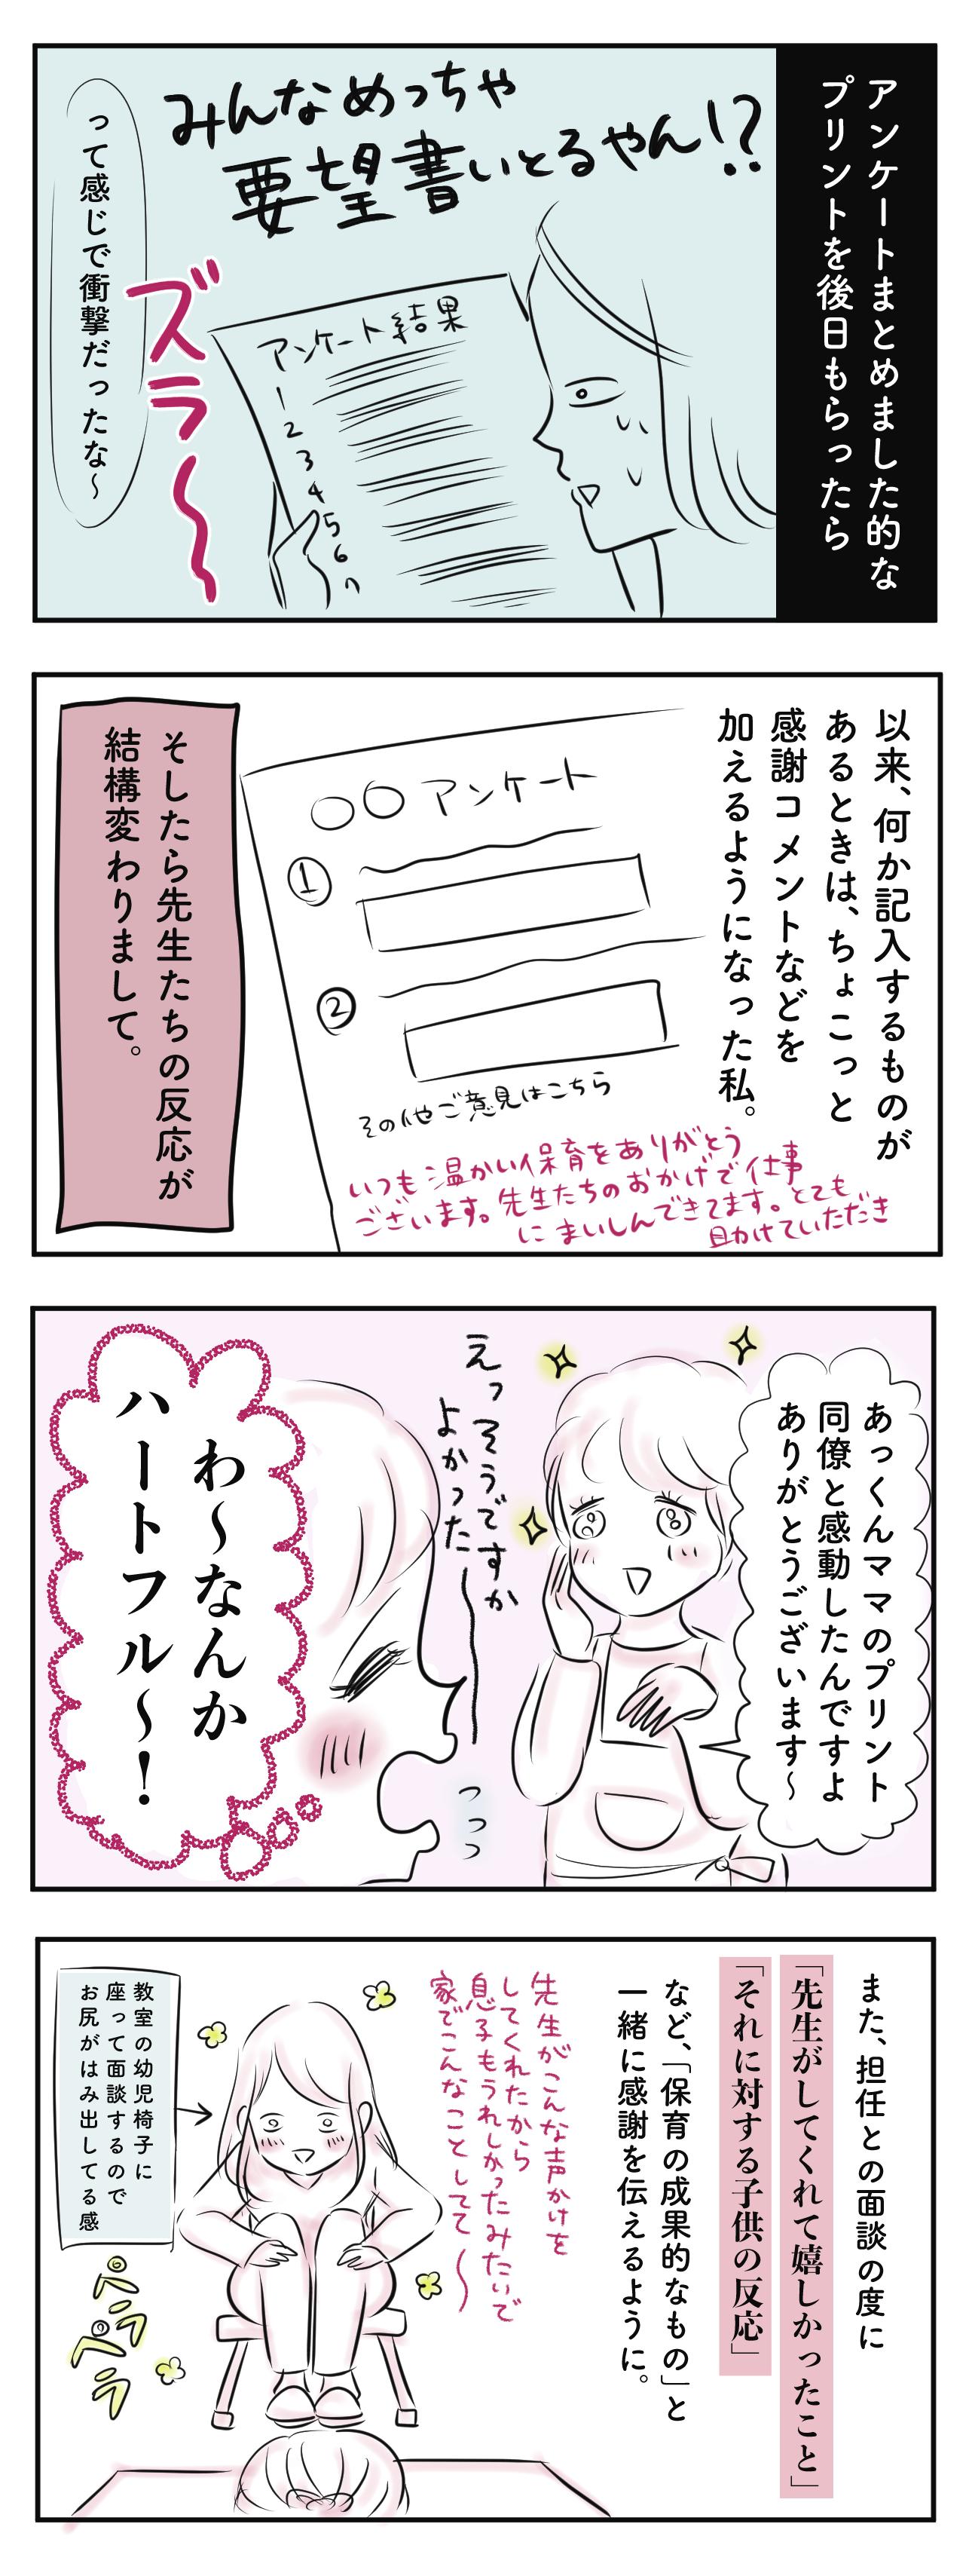 アンケートまとめました的な
プリントを後日もらったら
みんなめっちゃ
要望書いとるやん!?
アンケート結果
1
2
3
4
5
6
7
ズラ〜
って感じで衝撃だったな〜
以来、何か記入するものが
あるときは、ちょこっと
感謝コメントなどを
加えるようになった私。
○○アンケート
①
②
その他ご意見はこちら
いつも温かい保育をありがとう
ございます。先生たちのおかげで仕事
にまいしんできてます。とても
助けていただき
そしたら先生たちの反応が
結構変わりまして。
あっくんママのプリント
同僚と感動したんですよ
ありがとうございます〜
えっそうですか
よかったー
っっっ
わ〜なんか
ハートフル〜!
また、担任との面談の度に
「先生がしてくれて嬉しかったこと」
「それに対する子供の反応」
など、「保育の成果的なもの」と
一緒に感謝を伝えるように。
先生がこんな声かけを
してくれたから
息子もうれしかったみたいで
家でこんなことしてて〜
教室の幼児椅子に
座って面談するので
お尻がはみ出してる感
ペラ
ペラ